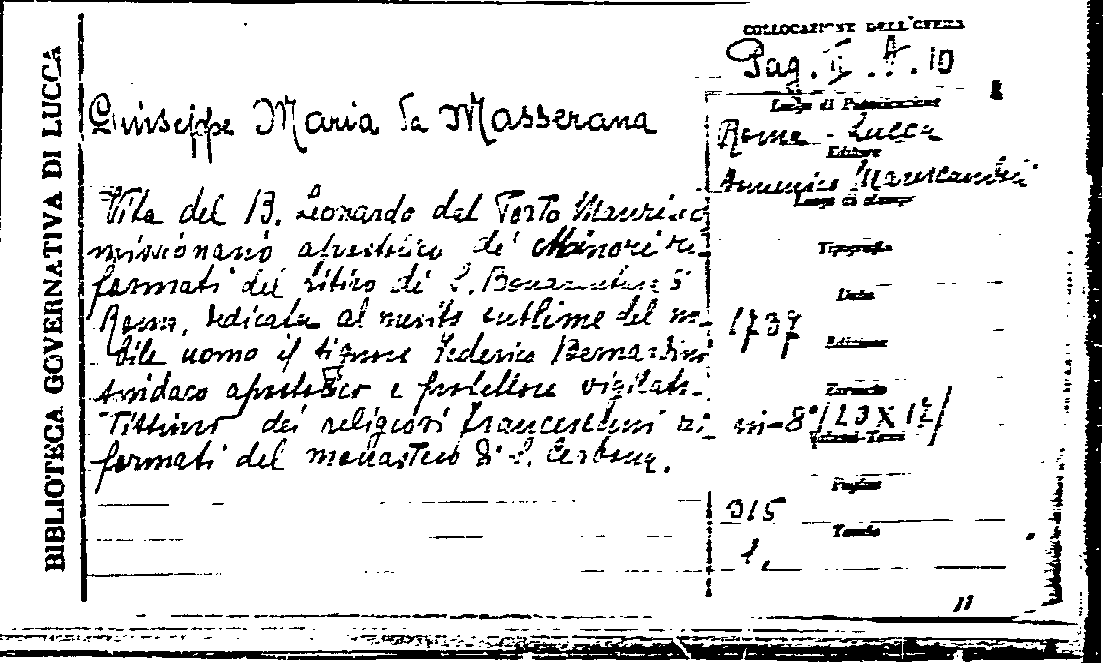 BIBLIOTECA GOVERNATIVA DI LUCCA
COLLOCAZIONE DELL'OPERA
Pag. II. A. 10
Giuseppe Maria da Masserana
Luogo di Pubblicazione
Roma - Lucca
Editore
Domenico Marescandoli
Luogo di stampa
Vita del B. Leonardo dal Porto Maurizio
missionario apostolico de' Minori ri-
formati del Ritiro di S. Bonaventura
Roma, dedicata al merito sublime del no-
bile uomo il signore Federico Bernardini
sindaco apostolico e protettore vigilan-
tissimo dei religiosi francescani ri-
formati del monastero di S. Cerbone.
Tipografia
Data
17
Edizione
Formato
in-8° (20 X 12)
Volumi-Tomi
Pagine
315
Tavole
1.
11